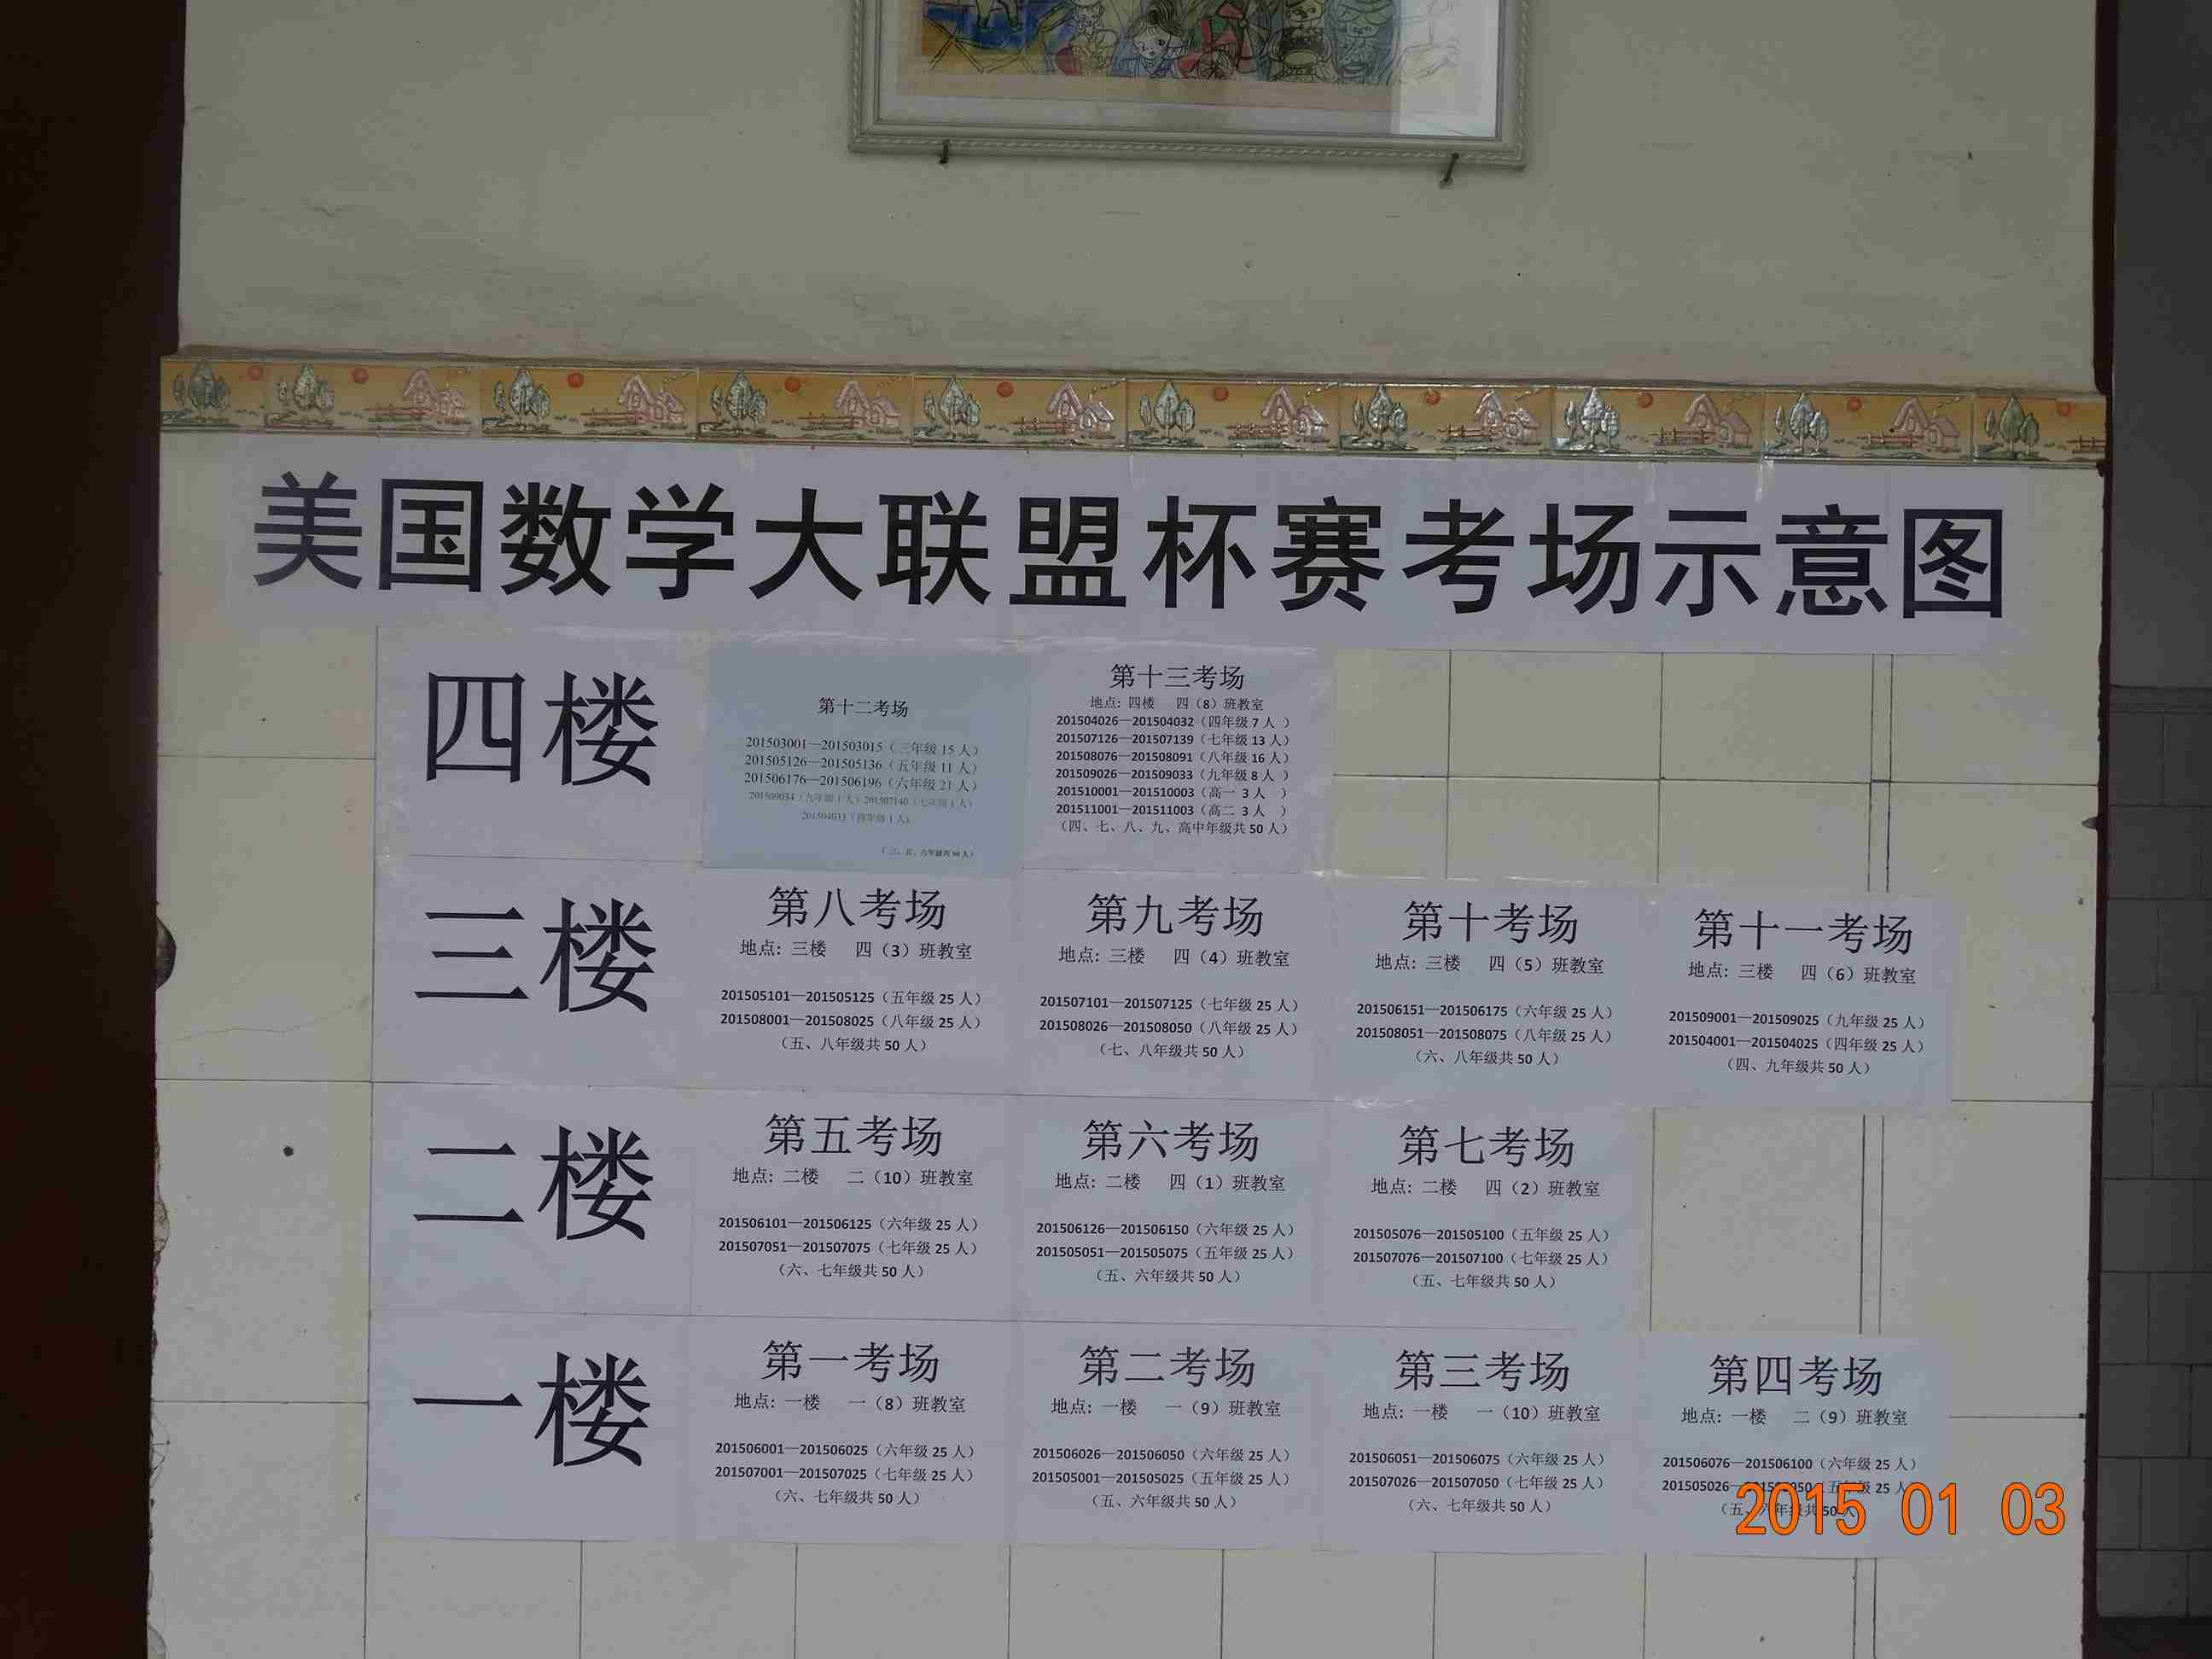 美国数学大联盟杯赛考场示意图
四楼
第十二考场
201503001—201503015（三年级 15 人）
201505126—201505136（五年级 11 人）
201506176—201506196（六年级 21 人）
201509034（九年级 1 人）201507140（七年级 1 人）
201504033（四年级 1 人）
第十三考场
地点: 四楼 四（8）班教室
201504026—201504032（四年级 7 人 ）
201507126—201507139（七年级 13 人）
201508076—201508091（八年级 16 人）
201509026—201509033（九年级 8 人 ）
201510001—201510003（高一 3 人 ）
201511001—201511003（高二 3 人 ）
（四、七、八、九、高中年级共 50 人）
三楼
第八考场
地点: 三楼 四（3）班教室
201505101—201505125（五年级 25 人）
201508001—201508025（八年级 25 人）
（五、八年级共 50 人）
第九考场
地点: 三楼 四（4）班教室
201507101—201507125（七年级 25 人）
201508026—201508050（八年级 25 人）
（七、八年级共 50 人）
第十考场
地点: 三楼 四（5）班教室
201506151—201506175（六年级 25 人）
201508051—201508075（八年级 25 人）
（六、八年级共 50 人）
第十一考场
地点: 三楼 四（6）班教室
201509001—201509025（九年级 25 人）
201504001—201504025（四年级 25 人）
（四、九年级共 50 人）
二楼
第五考场
地点: 二楼 二（10）班教室
201506101—201506125（六年级 25 人）
201507051—201507075（七年级 25 人）
（六、七年级共 50 人）
第六考场
地点: 二楼 四（1）班教室
201506126—201506150（六年级 25 人）
201505051—201505075（五年级 25 人）
（五、六年级共 50 人）
第七考场
地点: 二楼 四（2）班教室
201505076—201505100（五年级 25 人）
201507076—201507100（七年级 25 人）
（五、七年级共 50 人）
一楼
第一考场
地点: 一楼 一（8）班教室
201506001—201506025（六年级 25 人）
201507001—201507025（七年级 25 人）
（六、七年级共 50 人）
第二考场
地点: 一楼 一（9）班教室
201506026—201506050（六年级 25 人）
201505001—201505025（五年级 25 人）
（五、六年级共 50 人）
第三考场
地点: 一楼 一（10）班教室
201506051—201506075（六年级 25 人）
201507026—201507050（七年级 25 人）
（六、七年级共 50 人）
第四考场
地点: 一楼 二（9）班教室
201506076—201506100（六年级 25 人）
201505026—201505050（五年级 25 人）
（五、六年级共 50 人）
2015 01 03